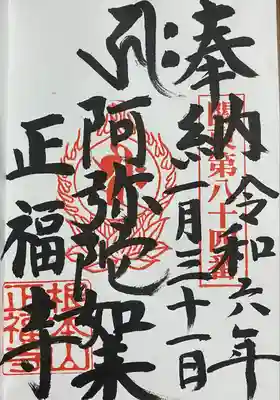 奉納
令和六年
一月三十一日
關東第八十四番
阿弥陀如来
正福寺
根本山
正福寺